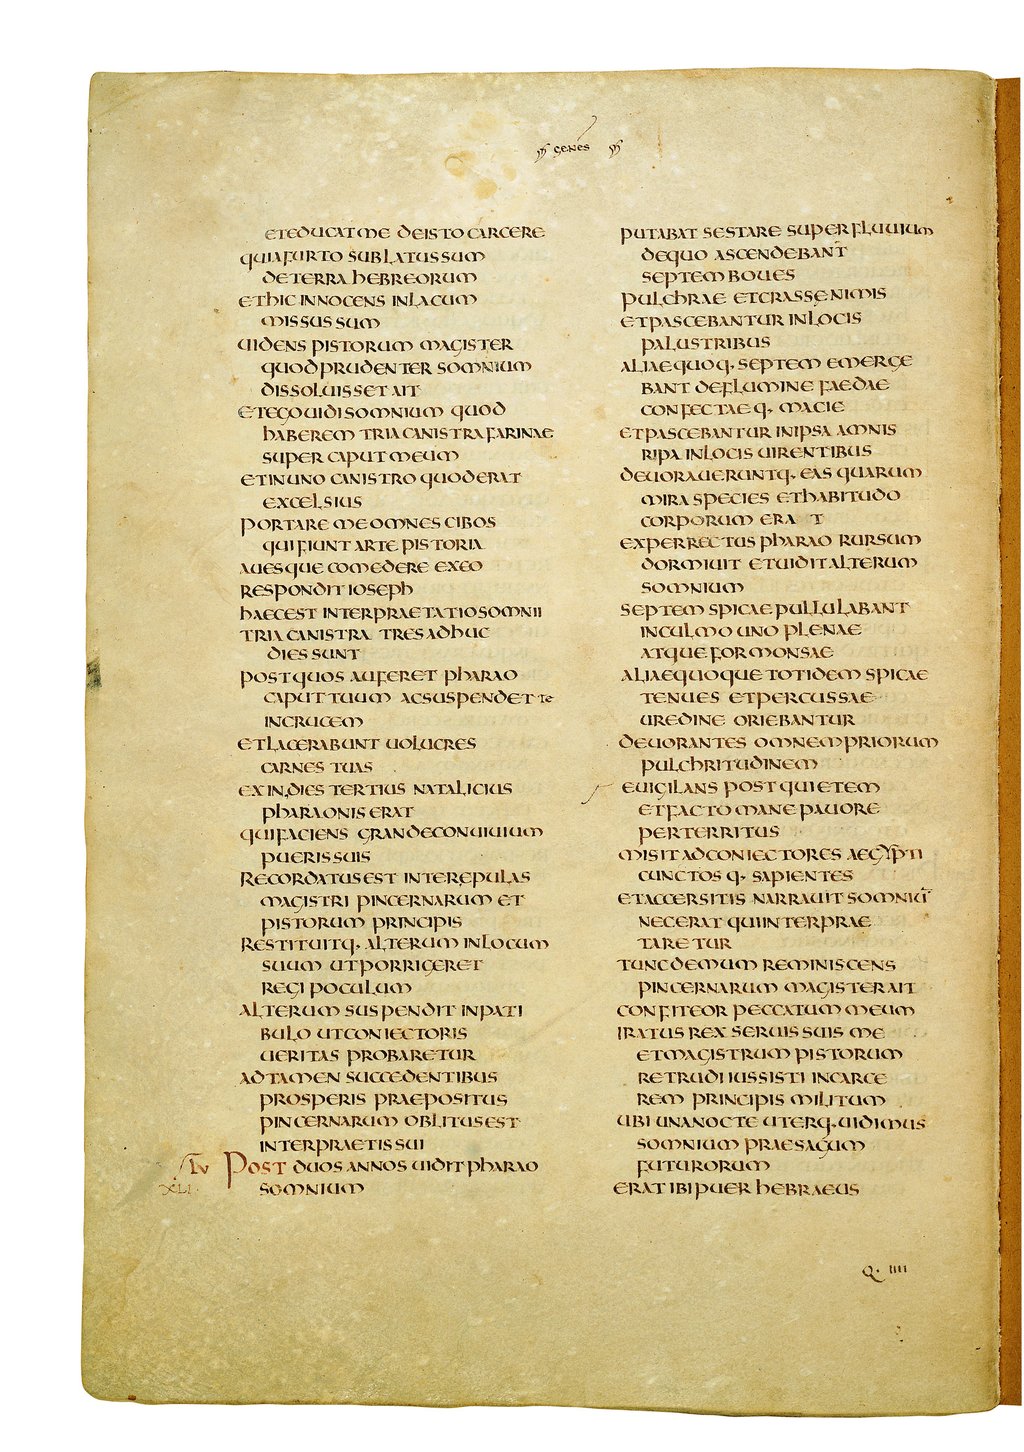 genes
et educat me de isto carcere
quia furto sublatus sum
de terra hebreorum
et hic innocens in lacum
missus sum
uidens pistorum magister
quod prudenter somnium
dissoluisset ait
et ego uidi somnium quod
haberem tria canistra farinae
super caput meum
et in uno canistro quod erat
excelsius
portare me omnes cibos
qui fiunt arte pistoria
auesque comedere ex eo
respondit ioseph
haec est interpraetatio somnii
tria canistra tres adhuc
dies sunt
post quos auferet pharao
caput tuum ac suspendet te
in crucem
et lacerabunt uolucres
carnes tuas
exin dies tertius natalicius
pharaonis erat
qui faciens grande conuiuium
pueris suis
recordatus est inter epulas
magistri pincernarum et
pistorum principis
restituitq· alterum in locum
suum ut porrigeret
regi poculum
alterum suspendit in pati
bulo ut coniectoris
ueritas probaretur
ad tamen succedentibus
prosperis praepositus
pincernarum oblitus est
interpraetis sui
lv Post duos annos uidit pharao
XLI somnium
putabat se stare super fluuium
de quo ascendebant
septem boues
pulchrae et crassae nimis
et pascebantur in locis
palustribus
aliae quoq· septem emerge
bant de flumine faedae
confectaeq· macie
et pascebantur in ipsa amnis
ripa in locis uirentibus
deuoraueruntq· eas quarum
mira species et habitudo
corporum erat
experrectus pharao rursum
dormiuit et uidit alterum
somnium
septem spicae pullulabant
in culmo uno plenae
atque formonsae
aliae quoque totidem spicae
tenues et percussae
uredine oriebantur
deuorantes omnem priorum
pulchritudinem
euigilans post quietem
et facto mane pauore
perterritus
misit ad coniectores aegypti
cunctosq· sapientes
et accersitis narrauit somniū
nec erat qui interprae
taretur
tunc demum reminiscens
pincernarum magister ait
confiteor peccatum meum
iratus rex seruis suis me
et magistrum pistorum
retrudi iussisti in carce
rem principis militum
ubi una nocte uterq· uidimus
somnium praesagum
futurorum
erat ibi puer hebraeus
Q· IIII